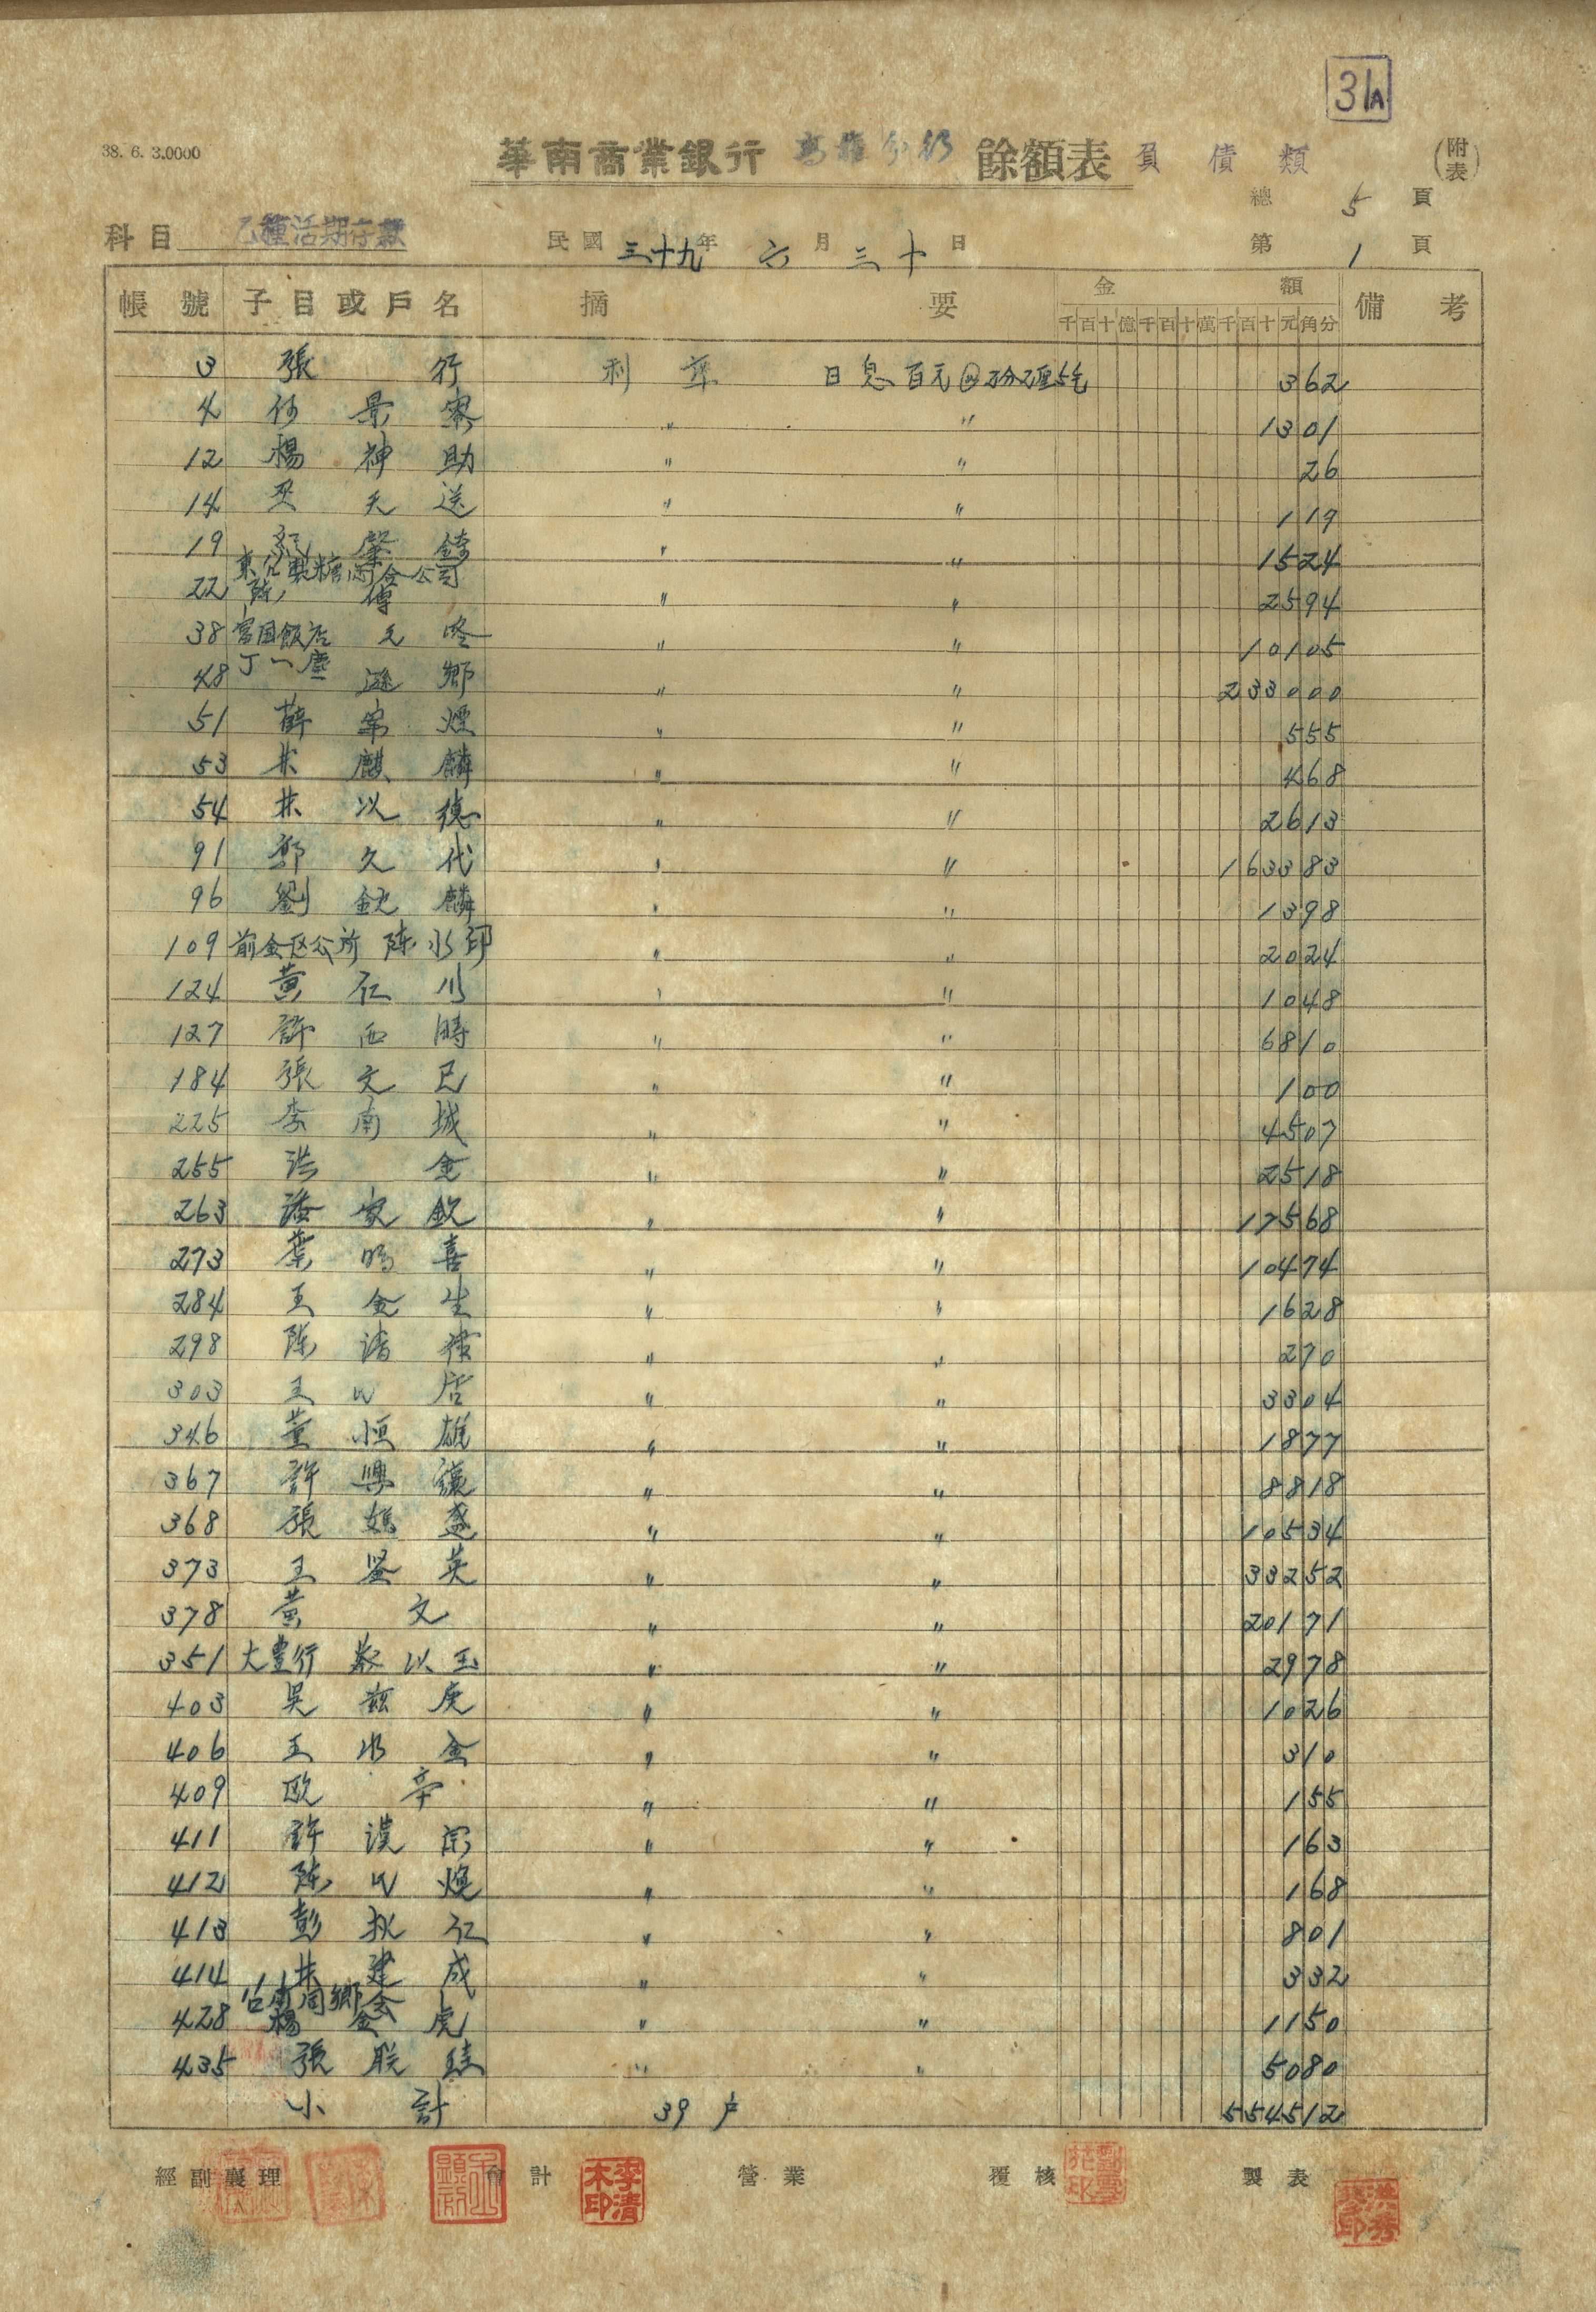 31A
38. 6. 3.0000
華南商業銀行 高雄分行 餘額表 負債類 (附表)
總 5 頁
科目 乙種活期存款 民國三十九年六月三十日 第 1 頁
帳號 子目或戶名 摘要 金額 備考
千百十億千百十萬千百十元角分
3 張 行 利率 日息百元 362
4 何景寮 〃 〃 1301
12 楊神助 〃 〃 26
14 天送 〃 〃 119
19 〃 〃 1524
22 〃 〃 2594
38 飯店 〃 〃 10105
48 丁一塵 鄉 〃 〃 233000
51 薛 煙 〃 〃 555
53 林麒麟 〃 〃 468
54 林以德 〃 〃 2613
91 鄭久代 〃 〃 163383
96 劉銳麟 〃 〃 1398
109 前金区公所 陈水印 〃 〃 2024
124 黃石川 〃 〃 1048
127 許西時 〃 〃 6810
184 張文已 〃 〃 100
225 李南城 〃 〃 4507
255 洪 金 〃 〃 2518
263 潘家欽 〃 〃 17568
273 葉明喜 〃 〃 10474
284 王金生 〃 〃 1628
298 陈清 〃 〃 270
303 王 〃 〃 3304
346 董恒雄 〃 〃 1877
367 許興讓 〃 〃 8818
368 張 盛 〃 〃 10534
373 王 英 〃 〃 33252
378 黃 文 〃 〃 20171
351 大豐行 蔡以玉 〃 〃 2978
403 吳 庚 〃 〃 1026
406 王水金 〃 〃 310
409 歐 辛 〃 〃 155
411 許漢宗 〃 〃 163
412 陈 煥 〃 〃 168
413 彭秋仁 〃 〃 801
414 林建成 〃 〃 332
428 台南同鄉会 楊金虎 〃 〃 1150
435 張 〃 〃 5080
小計 39 户 554512
經副襄理 會計 營業 覆核 製表
李清木印